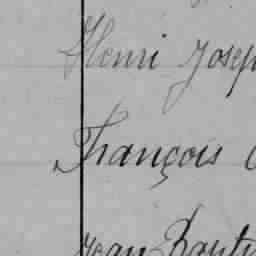 Henri Josep
François
Jean Bapti